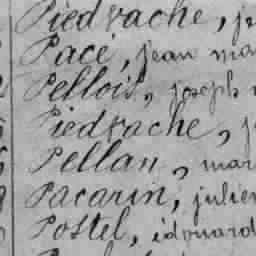 Piedvache, j
Pacé, jean ma
Pellois, joseph
Piedvache, j
Pellan, mar
Pacarin, julien
Postel, édouard